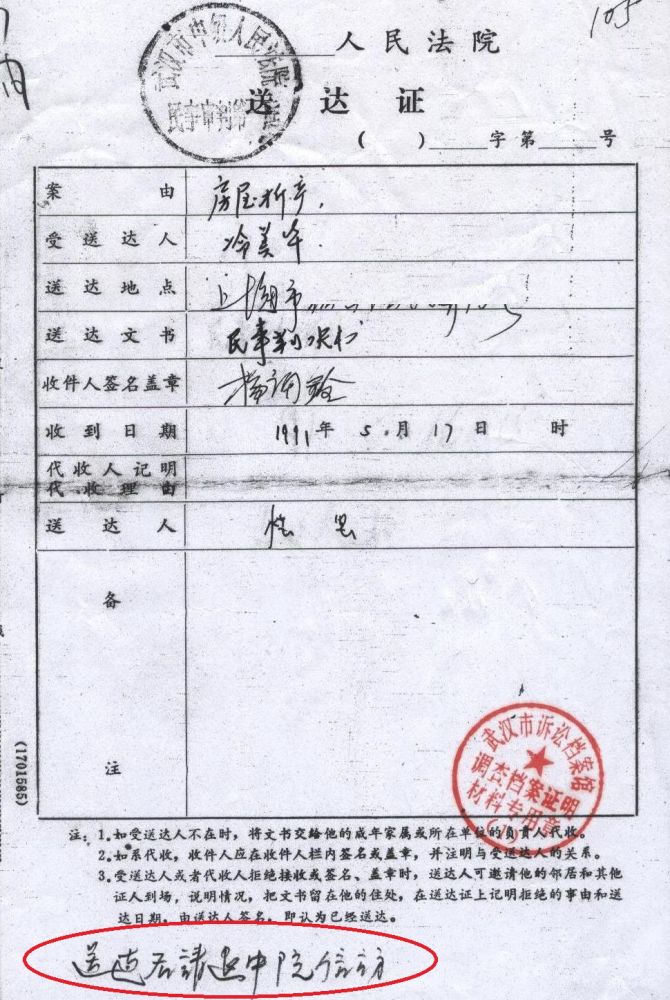 105
人民法院
武汉市中级人民法院
民事审判第
送达证
( ) 字第 号
案由 房屋析产.
受送达人 冷美
送达地点 上 市
送达文书 民事判决
收件人签名盖章 杨
收到日期 1991年 5.月 17日 时
代收人记明
代收理由
送达人
备
注
武汉市诉讼档案馆
调查档案证明
材料专用章
(1701585)
注:1.如受送达人不在时,将文书交给他的成年家属或所在单位的负责人代收。
2.如系代收,收件人应在收件人栏内签名或盖章,并注明与受送达人的关系。
3.受送达人或者代收人拒绝接收或签名、盖章时,送达人可邀请他的邻居和其他
证人到场,说明情况,把文书留在他的住处,在送达证上记明拒绝的事由和送
达日期,由送达人签名,即认为已经送达。
送达后請退中院信访